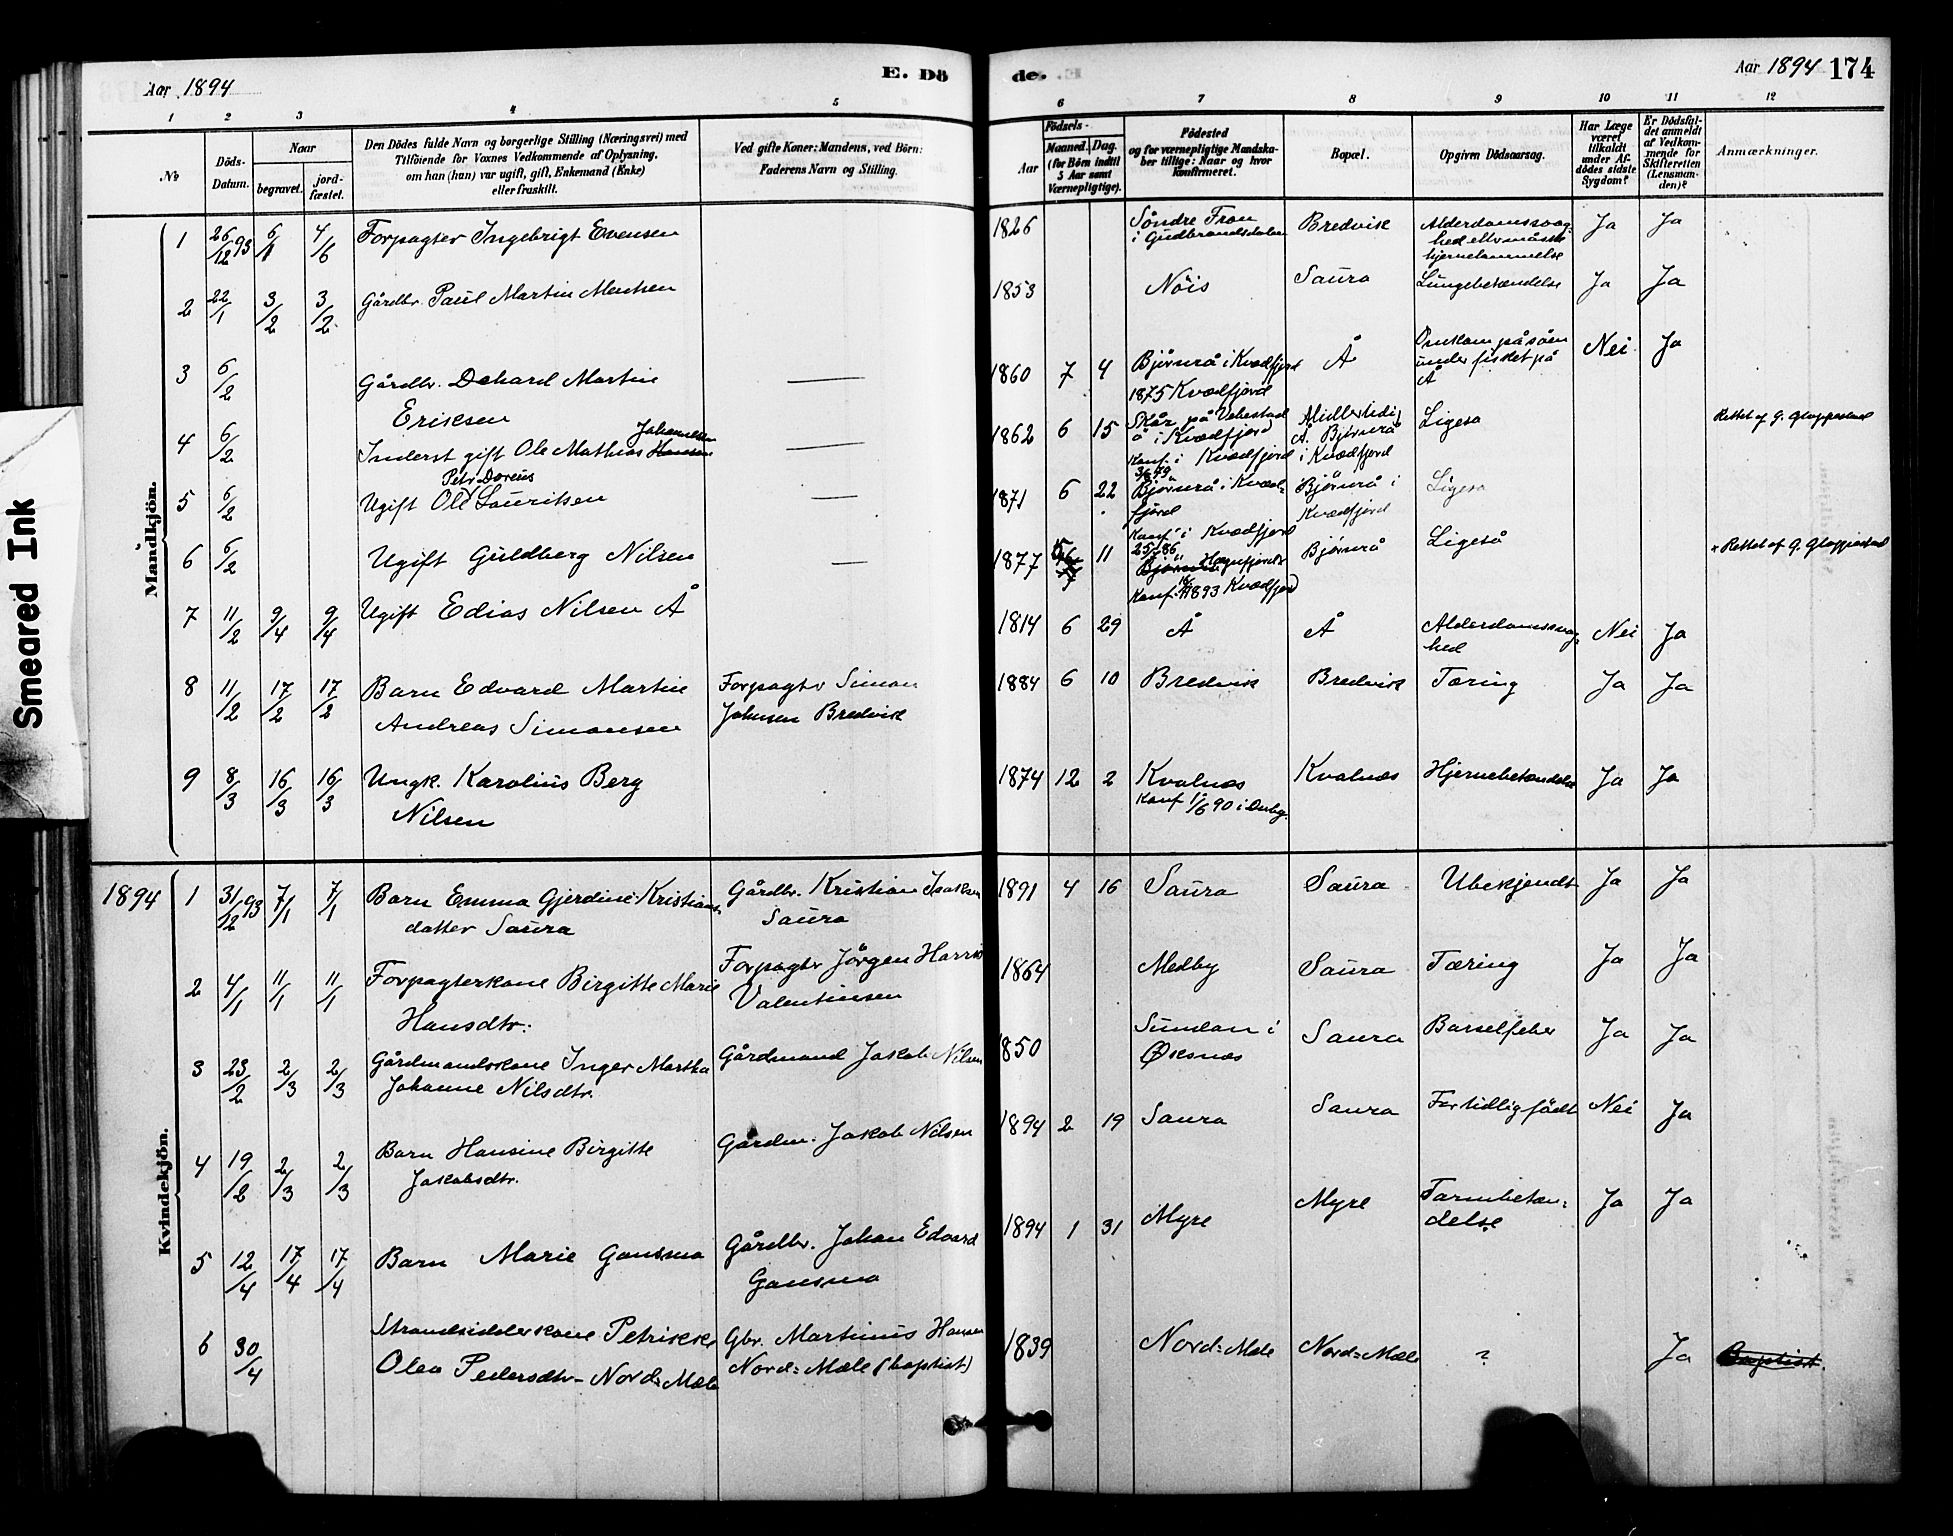 Aar 1894
E. Dö
de.
Aar 1894
174
1 2 3 4 5
6 7 8 9 10 11 12
No
Döds-
Datum.
Naar
begravet.
jord-
fæstet.
Den Dödes fulde Navn og borgerlige Stilling (Næringsvei) med
Tilföiende for Voxnes Vedkommende af Oplysning,
om han (hun) var ugift, gift, Enkemand (Enke)
eller fraskilt.
Ved gifte Koner: Mandens, ved Börn:
Faderens Navn og Stilling.
Födsels-
Aar
Maaned. Dag.
(for Börn indtil
5 Aar samt
Værnepligtige).
Födested
og for værnepligtige Mandska-
ber tillige: Naar og hvor
konfirmeret.
Bopæl.
Opgiven Dödsaarsag.
Har Læge
været
tilkaldt
under Af-
dödes sidste
Sygdom?
Er Dödsfal-
det anmeldt
af Vedkom-
mende for
Skifteretten
(Lensman-
den)?
Anmærkninger.
Smeared Ink
Mandkjön.
1 26/12 93 6/1 4/6 Forpagter Ingebrigt Evensen
1826 Söndre Fron
i Gudbrandsdalen
Bredvik
Alderdomssvag-
hed eller måske
hjernelammelse
Ja Ja
2 22/1 3/2 3/2 Gårdbr. Paul Martin Madsen
1853 Nöis Saura Lungebetændelse Ja Ja
3 6/2 Gårdbr. Dehard Martin
Eriksen
1860 7 4 Björnrå i Kvædfjord
1875 Kvædfjord
Å
Omkom på söen
under fisket på
Å
Nei Ja
4 6/2 Inderst gift Ole Mathias Hansen
Johannesen
1862 6 15 Skår på Vebestad
ö i Kvædfjord
Konf. i Kvædfjord
Midlertidig
Å. Björnrå
i Kvædfjord
Ligeså
Rettet af G. Gloppestad
5 6/2 Ugift Ole Lauritsen
Petr Doreus
1871 6 22 Björnrå i Kvæd-
fjord
Konf. i Kvædfjord
Björnrå i
Kvædfjord
Ligeså
6 6/2 Ugift Guldberg Nilsen
1877 11
Konf. 1893 Kvædfjord
Björnrå
Ligeså
Rettet af G. Gloppestad
7 11/2 9/4 9/4 Ugift Edias Nilsen Å
1814 6 29 Å Å Alderdomssvag-
hed
Nei Ja
8 11/2 17/2 17/2 Barn Edvard Martin
Andreas Simonsen
Forpagter Simon
Johnsen Bredvik
1884 6 10 Bredvik Bredvik Tæring Ja Ja
9 8/3 16/3 16/3 Ungk. Karolius Berg
Nilsen
1874 12 2 Kvalnæs
Konf 90 i Dvbg.
Kvalnæs Hjernebetændelse Ja Ja
1894
Kvindekjön.
1 31/12 93 7/1 7/1 Barn Emma Gjerdine Kristians-
datter Saura
Gårdbr. Kristian Isaksen
Saura
1891 4 16 Saura Saura Ubekjendt Ja Ja
2 4/1 11/1 11/1 Forpagterkone Birgitte Marie
Hansdtr.
Forpagter Jörgen Harris
Valentinsen
1864 Medby Saura Tæring Ja Ja
3 23/2 2/3 2/3 Gårdmandskone Inger Martha
Johanne Nilsdtr.
Gårdmand Jakob Nilsen
1850 Sundan i
Øksnæs
Saura Barselfeber Ja Ja
4 19/2 2/3 2/3 Barn Hansine Birgitte
Jakobsdtr.
Gårdm. Jakob Nilsen
1894 2 19 Saura Saura For tidlig födt Nei Ja
5 12/4 17/4 17/4 Barn Marie Gansmo
Gårdbr. Johan Edvard
Gansmo
1894 1 31 Myre Myre Tarmbetæn-
delse
Ja Ja
6 30/4 Strandsidderkone Petrikke
Olea Pedersdtr- Nord-Mæle
Gbr. Martinus Hansen
Nord-Mæle (baptist)
1839 Nord-Mæle Nord-Mæle ? Ja Baptist